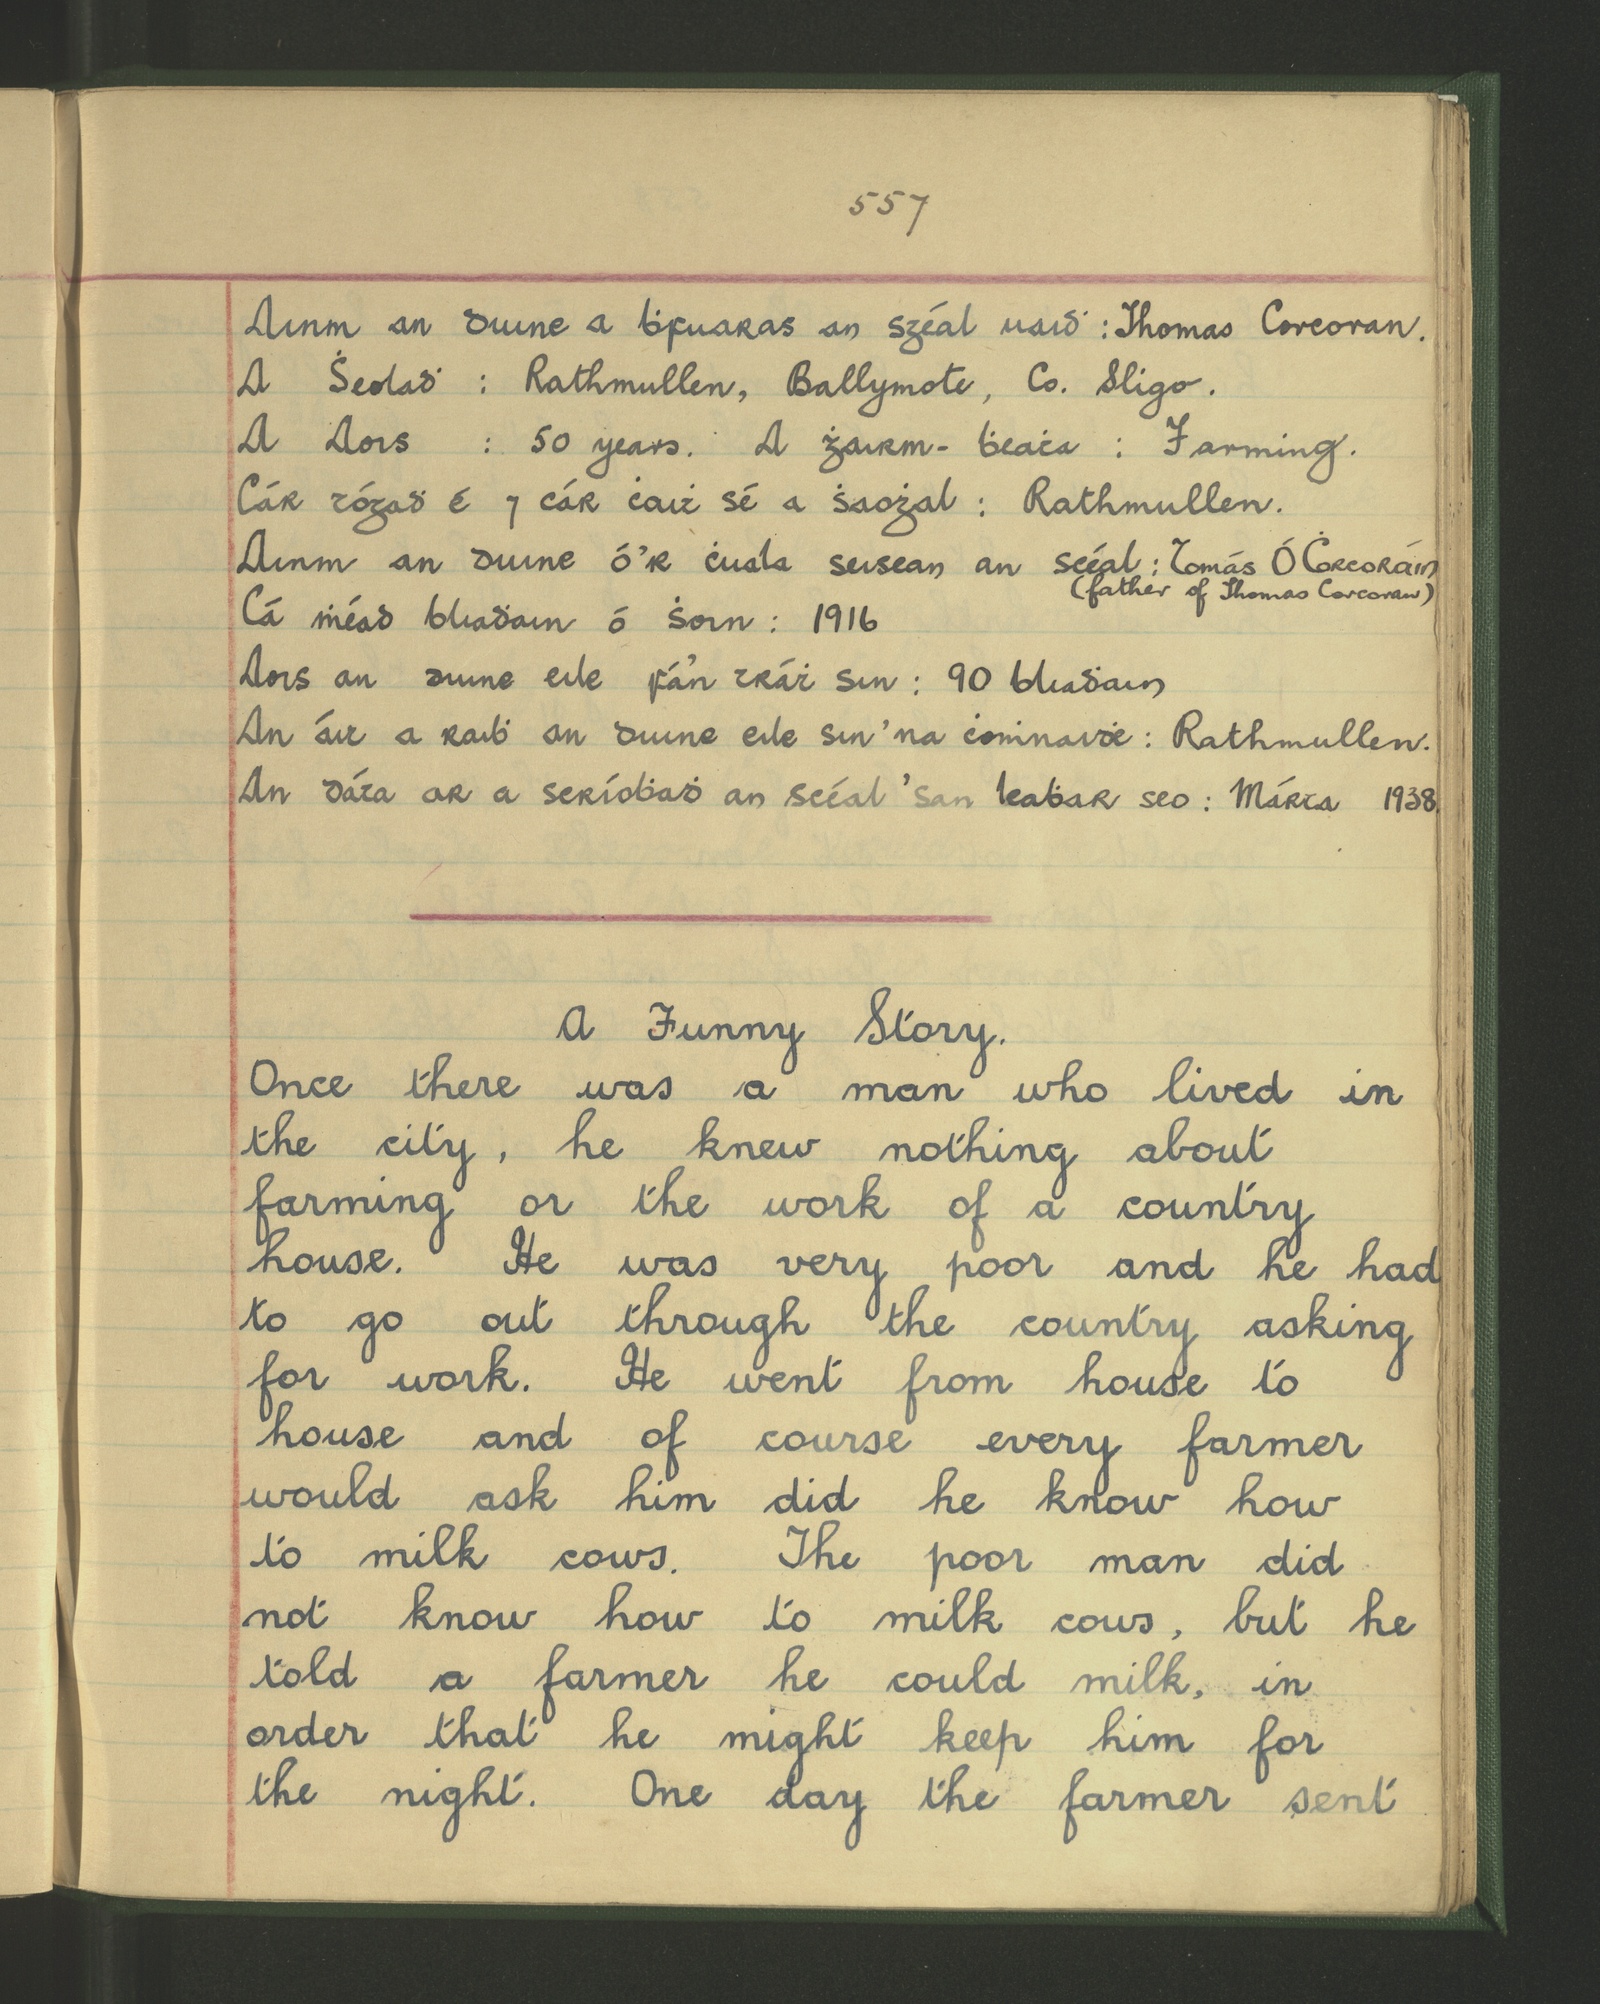 557
Ainm an duine a ḃfuaras an sgéal uaiḋ : Thomas Corcoran.
A Ṡeolaḋ : Rathmullen, Ballymote, Co. Sligo.
A Aois : 50 years. A ġairm-ḃeaṫa : Farming.
Cár tógaḋ é ⁊ cár ċaiṫ sé a ṡaoġal : Rathmullen.
Ainm an duine ó'r ċuala seisean an scéal : Tomás Ó Corcoráin
(father of Thomas Corcoran)
Cá ṁéad bliaḋain ó ṡoin : 1916
Aois an duine eile fá'n tráṫ sin : 90 bliaḋain
An áit a raiḃ an duine eile sin 'na ċoṁnaiḋe : Rathmullen.
An dáta ar a scríoḃaḋ an scéal 'san leaḃar seo : Márta 1938.
A Funny Story.
Once there was a man who lived in
the city, he knew nothing about
farming or the work of a country
house. He was very poor and he had
to go out through the country asking
for work. He went from house to
house and of course every farmer
would ask him did he know how
to milk cows. The poor man did
not know how to milk cows, but he
told a farmer he could milk, in
order that he might keep him for
the night. One day the farmer sent